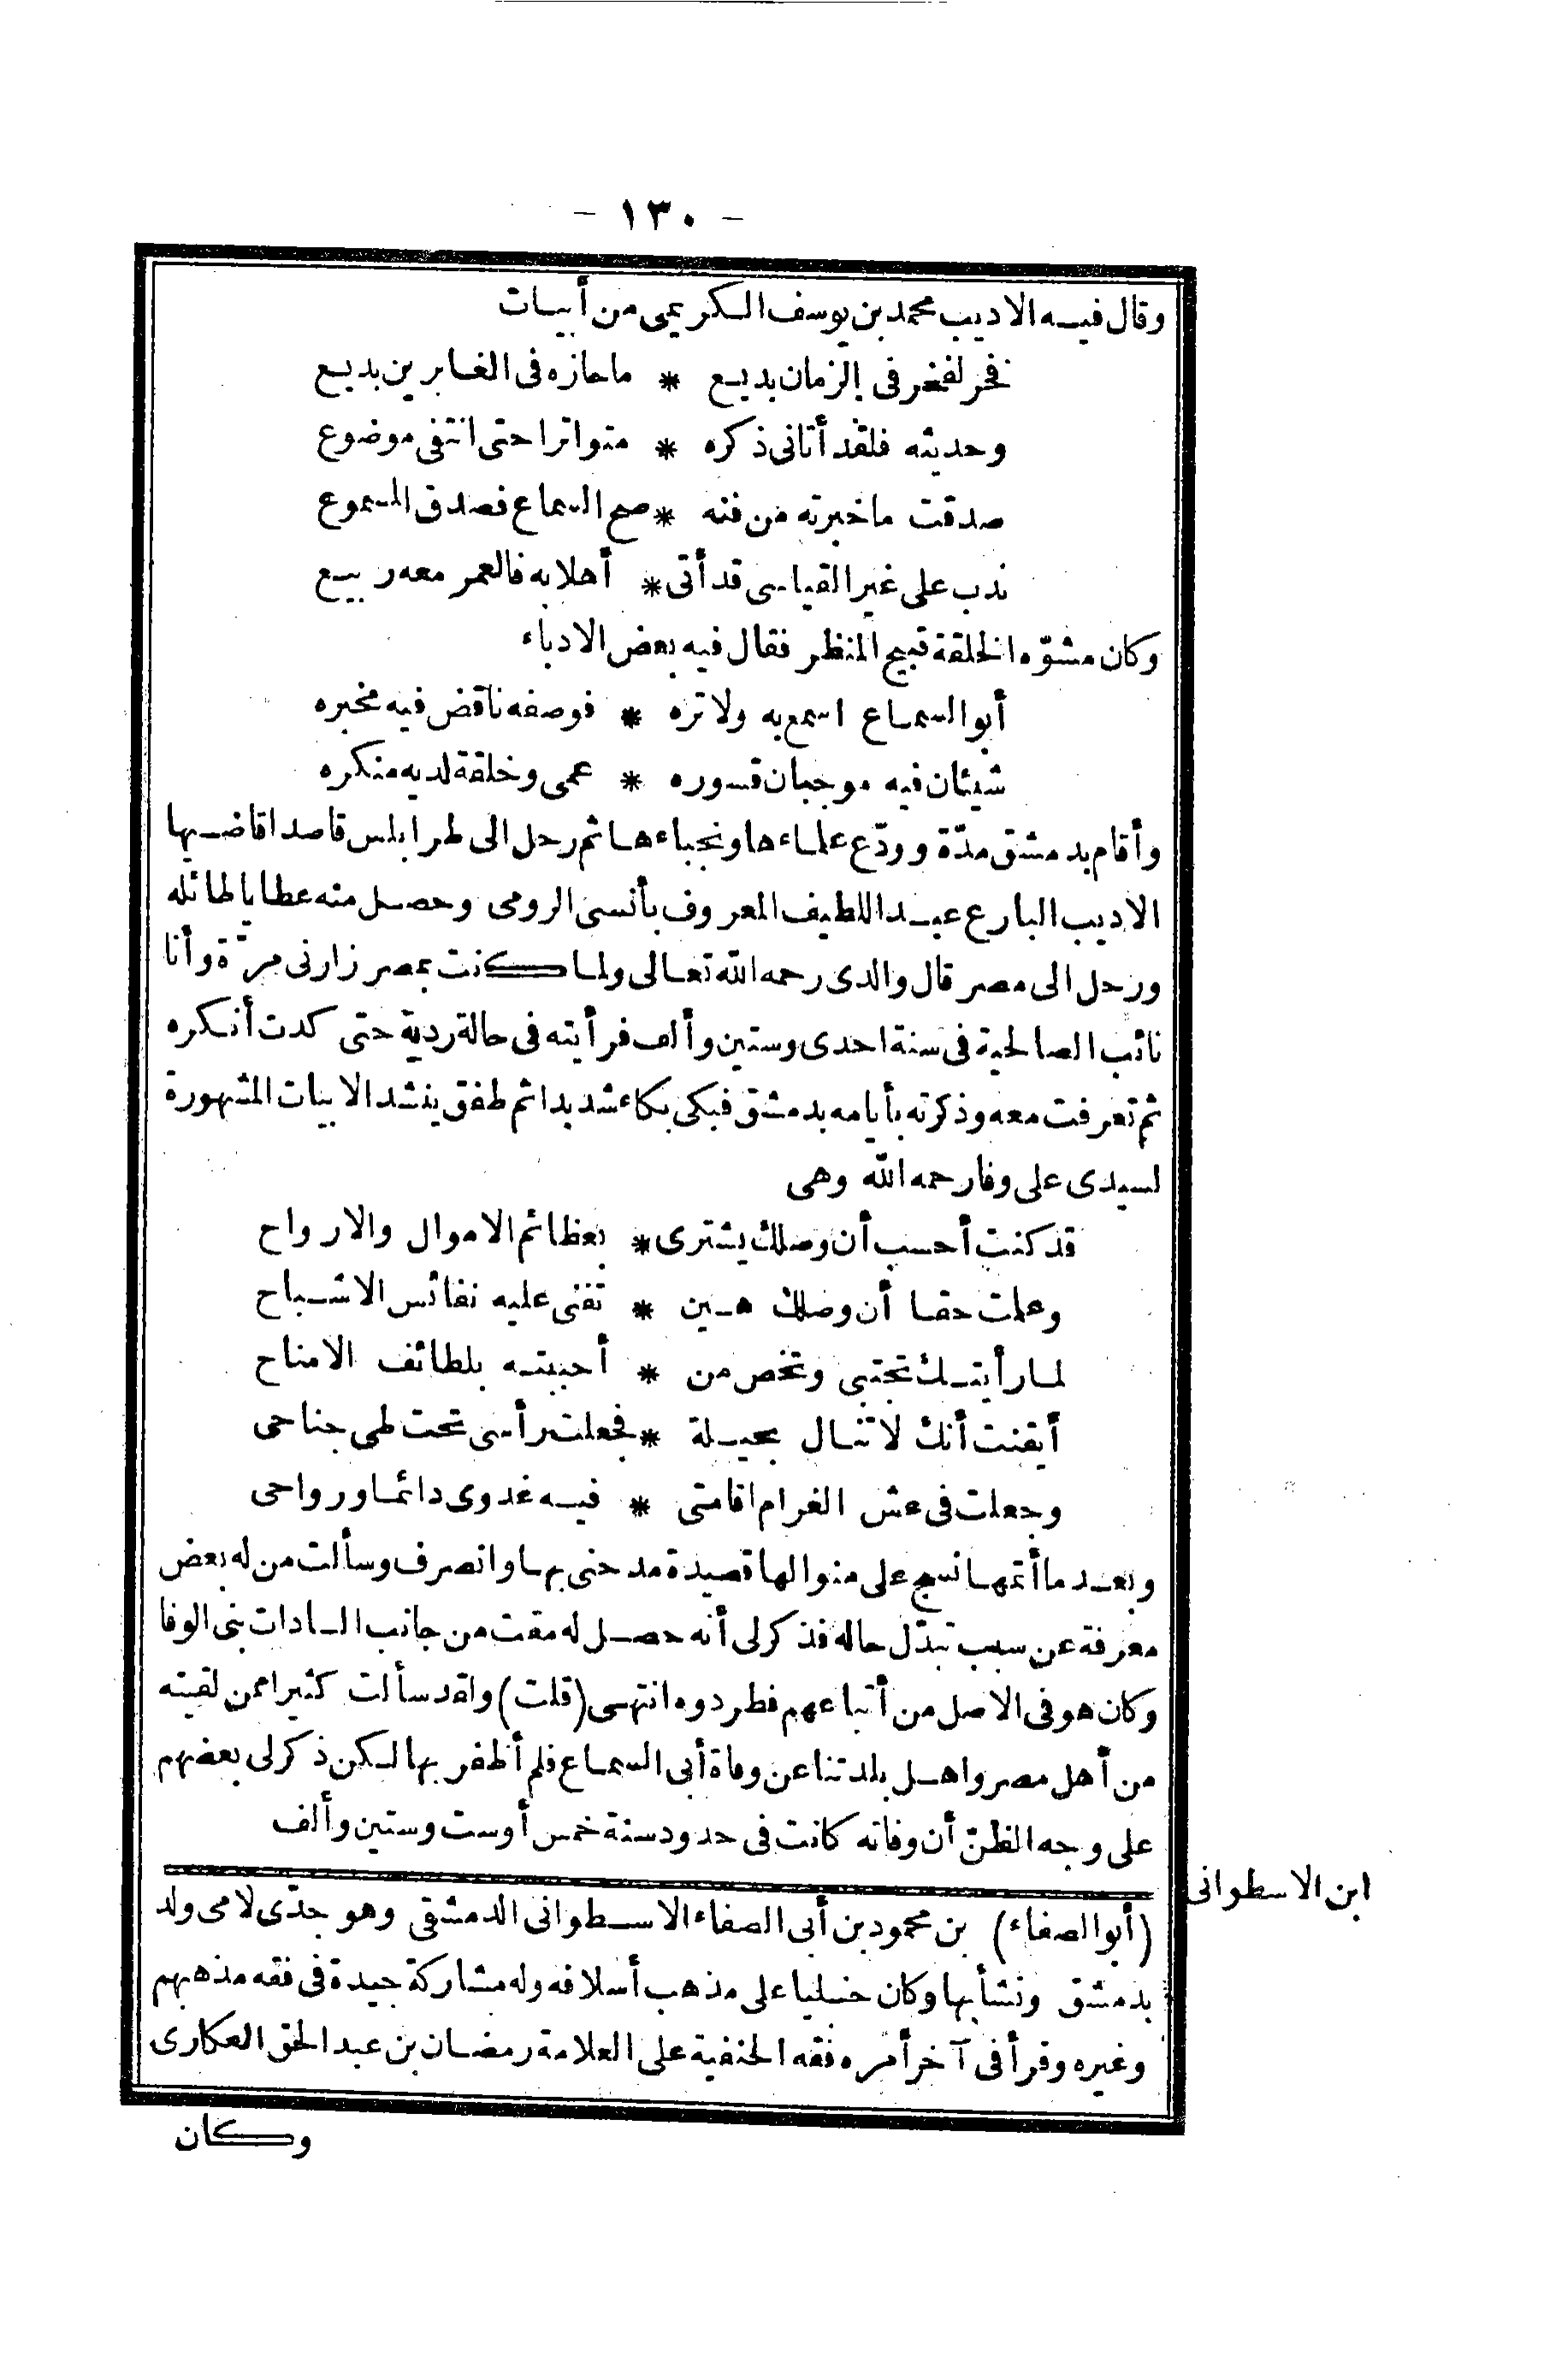 - ١٣٠ -
وقال فيه الاديب محمد بن يوسف الكريمى من أبيات
فخر لفخر فى الزمان بديع * ما حازه فى الغابرين بديع
وحديثه فلقد أتانى ذكره * متواترا حتى انتفى موضوع
صدقت ما خبرته من فنه * صح السماع فصدق المسموع
ندب على غير القياسى قد أتى * أهلا به فالعمر معه ربيع
وكان مشوّه الخلقة قبيح المنظر فقال فيه بعض الادباء
أبو السماع اسمع به ولا تره * فوصفه ناقض فيه مخبره
شيئان فيه موجبان قسوره * عمى وخلقة لديه منكره
وأقام بدمشق مدّة وودّع علماءها ونجباءها ثم رحل الى طرابلس قاصدا قاضيها
الاديب البارع عبد اللطيف المعروف بأنسى الرومى وحصل منه عطايا طائله
ورحل الى مصر قال والدى رحمه الله تعالى ولما كنت بمصر زارنى مرّة وأنا
نائب الصالحية فى سنة احدى وستين وألف فرأيته فى حالة ردية حتى كدت أنكره
ثم تعرفت معه وذكرته بأيامه بدمشق فبكى بكاء شديدا ثم طفق ينشد الابيات المشهورة
لسيدى على وفا رحمه الله وهى
قد كنت أحسب أن وصلك يشترى * بعظائم الاموال والارواح
وعلمت حقا أن وصلك هين * تفنى عليه نفائس الاشباح
لما رأيتك تجتبى وتخص من * أحببته بلطائف الامناح
أيقنت أنك لا تنال بحيلة * فجعلت رأسى تحت طى جناحى
وجعلت فى عش الغرام اقامتى * فيه غدوى دائما ورواحى
وبعد ما أتمها نسج على منوالها قصيدة مدحنى بها وانصرف وسألت من له بعض
معرفة عن سبب تبدّل حاله فذكر لى أنه حصل له مقت من جانب السادات بنى الوفا
وكان هو فى الاصل من أتباعهم فطردوه انتهى (قلت) ولقد سألت كثيرا ممن لقيته
من أهل مصر واهل بلدتنا عن وفاة أبى السماع فلم أظفر بها لكن ذكر لى بعضهم
على وجه الظنّ أن وفاته كانت فى حدود سنة خمس أوست وستين وألف
ابن الاسطوانى
(أبو الصفاء) بن محمود بن أبى الصفاء الاسطوانى الدمشقى وهو جدّى لامى ولد
بدمشق ونشأ بها وكان حنبليا على مذهب أسلافه وله مشاركة جيدة فى فقه مذهبهم
وغيره وقرأ فى آخر أمره فقه الحنفية على العلامة رمضان بن عبد الحق العكارى
وكان